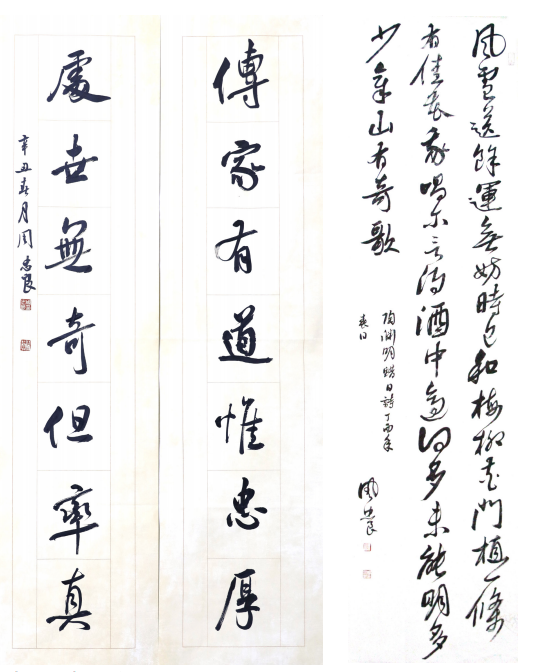 風雪送餘運無妨時已和梅柳夾門植一條
有佳花我唱尔言得酒中適何多未能明多
少章山有奇歌
陶淵明蜡日詩丁酉年
春日
周忠良
傳家有道惟忠厚
處世無奇但率真
辛丑春月周忠良